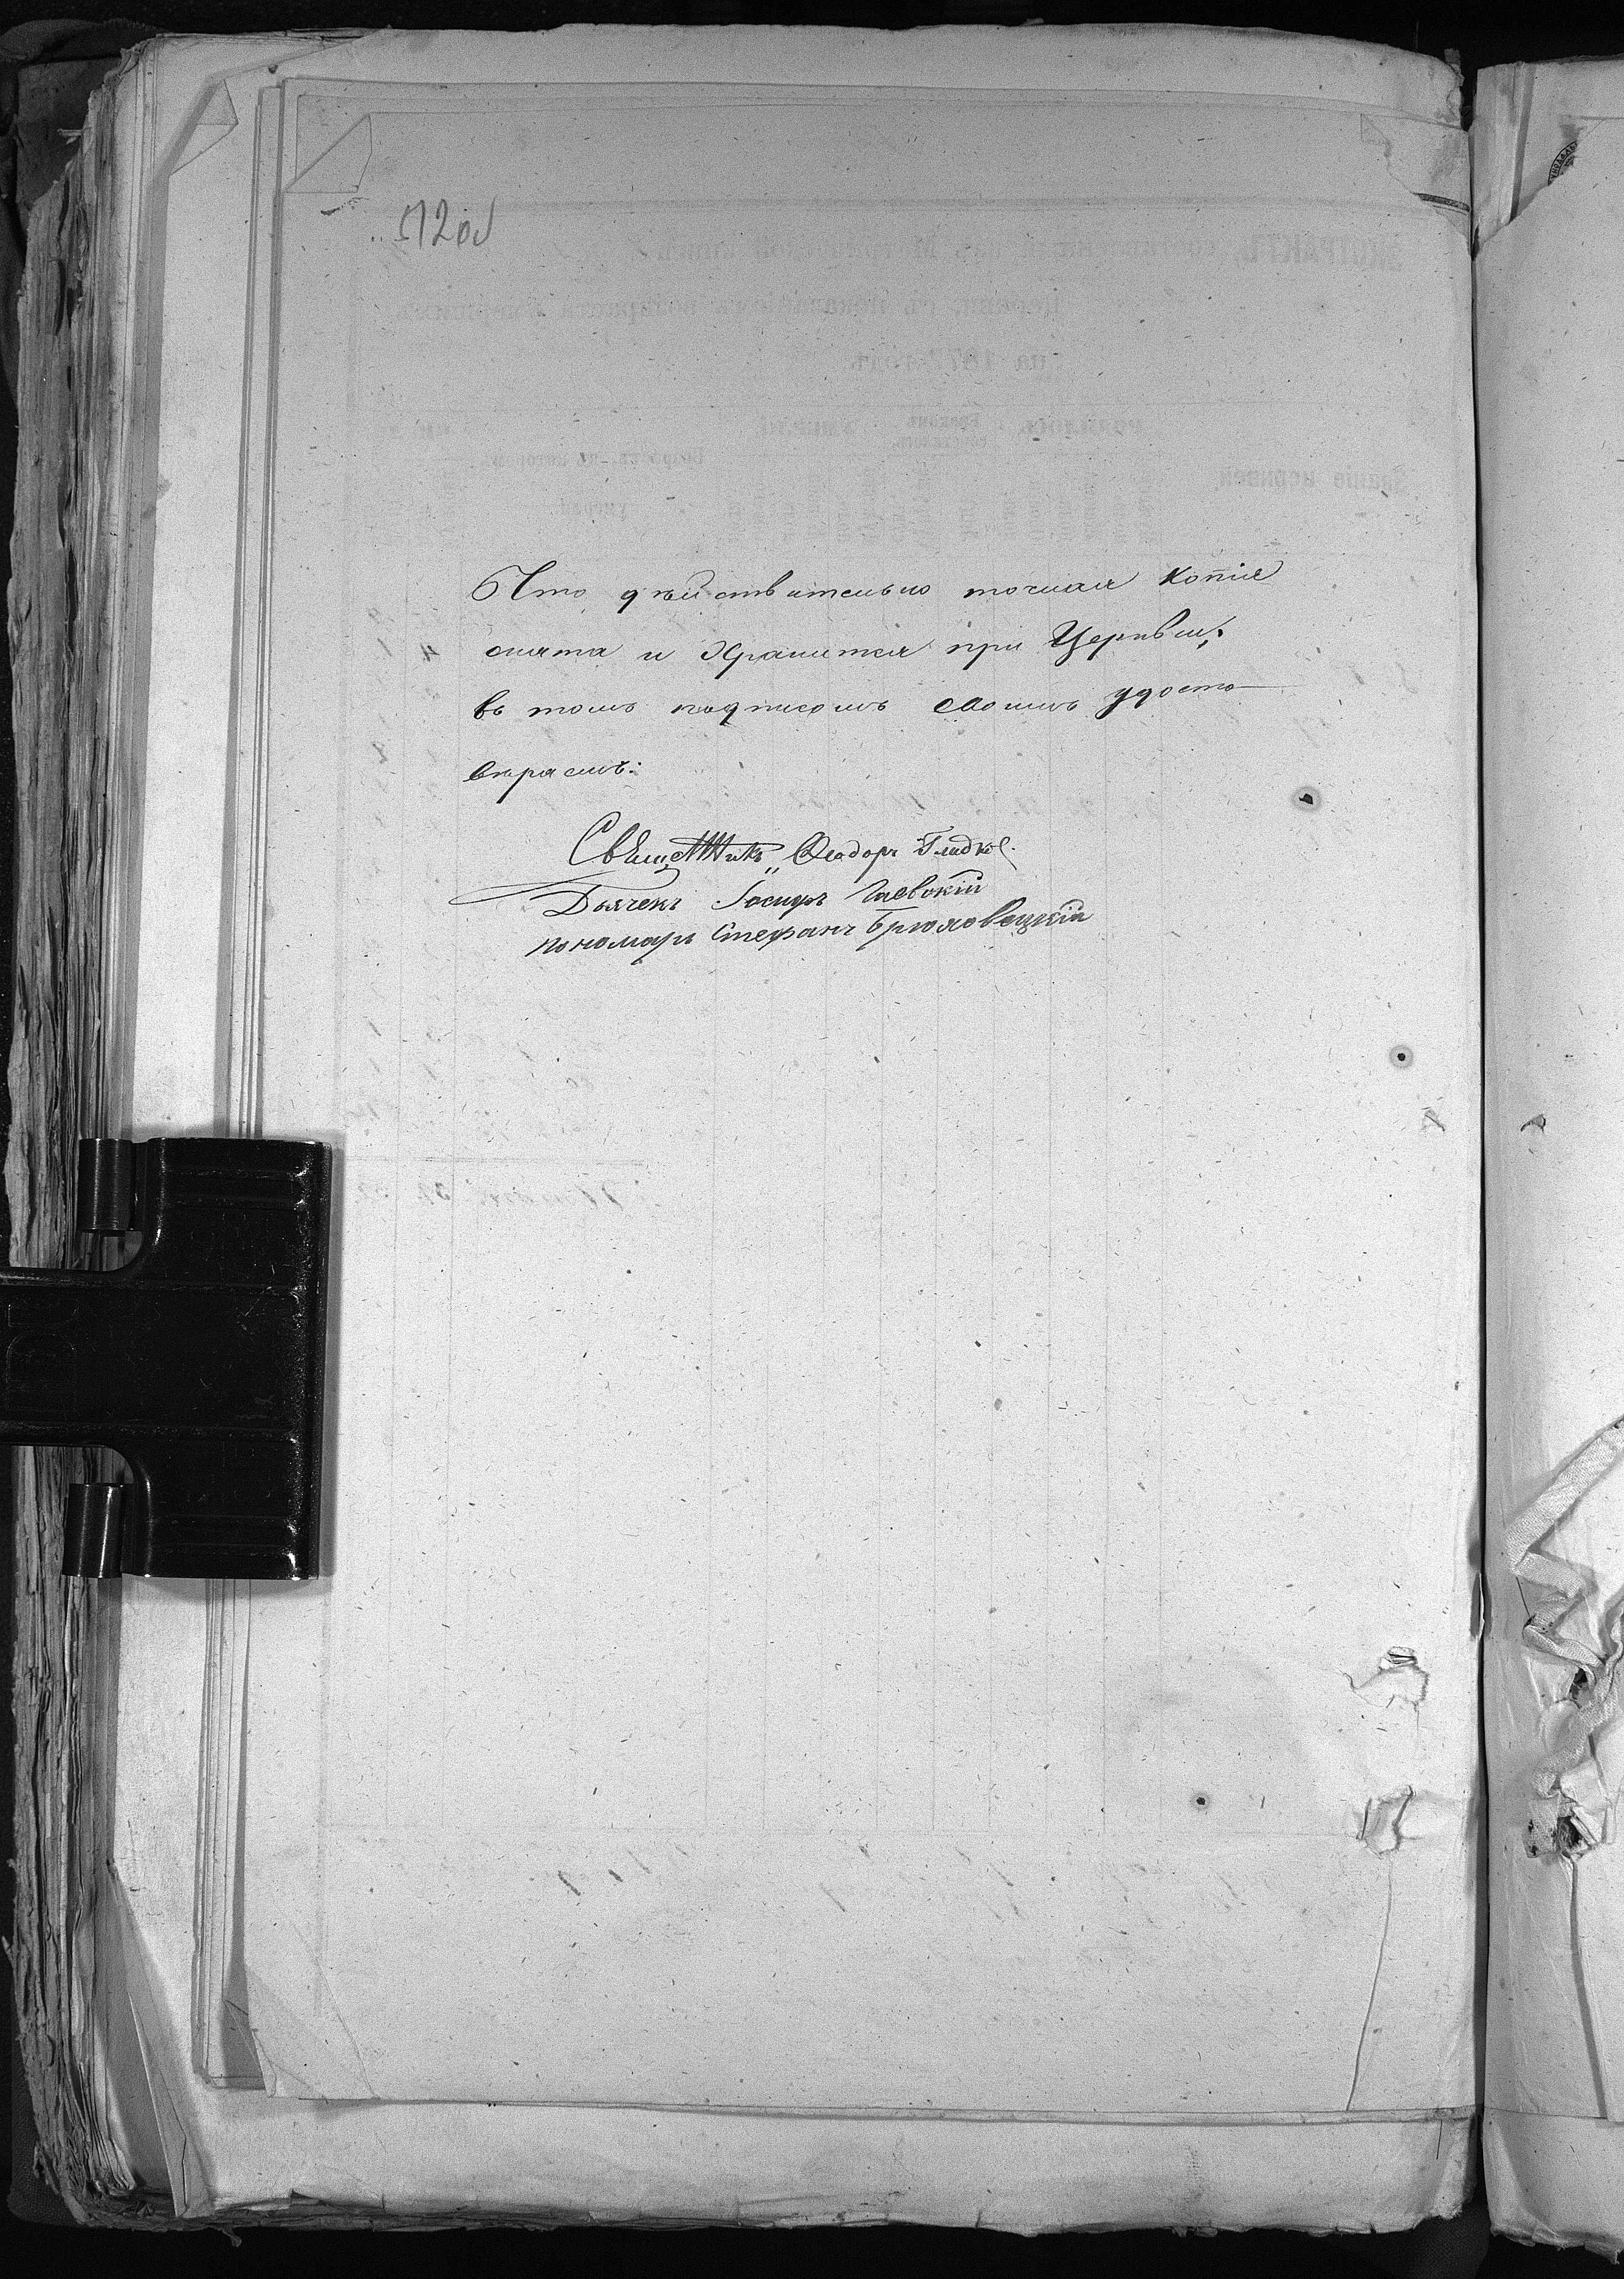 512 об
Что действительно точная копія
снята и хранится при Церкви,
въ томъ подписомъ своимъ удосто-
вѣраемъ:
Священникъ Ѳеодоръ Гладкі
Дьячекъ Іосифъ Гаевскій
пономарь Стефанъ Брюховецкій